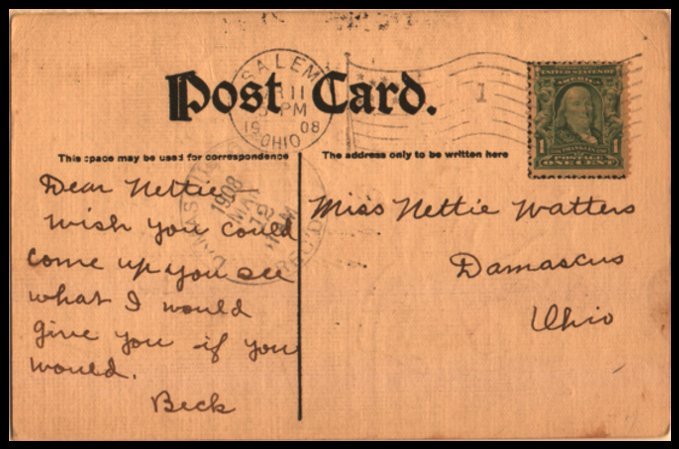 Post Card.
SALEM
11
PM
19 08
OHIO
1
UNITED STATES OF AMERICA
1 1
POSTAGE
ONE CENT
This space may be used for correspondence
The address only to be written here
1908
MAY
12
REC'D
Dear Nettie
Wish you could
come up you see
what I would
give you if you
would.
Beck
Miss Nettie Watters
Damascus
Ohio